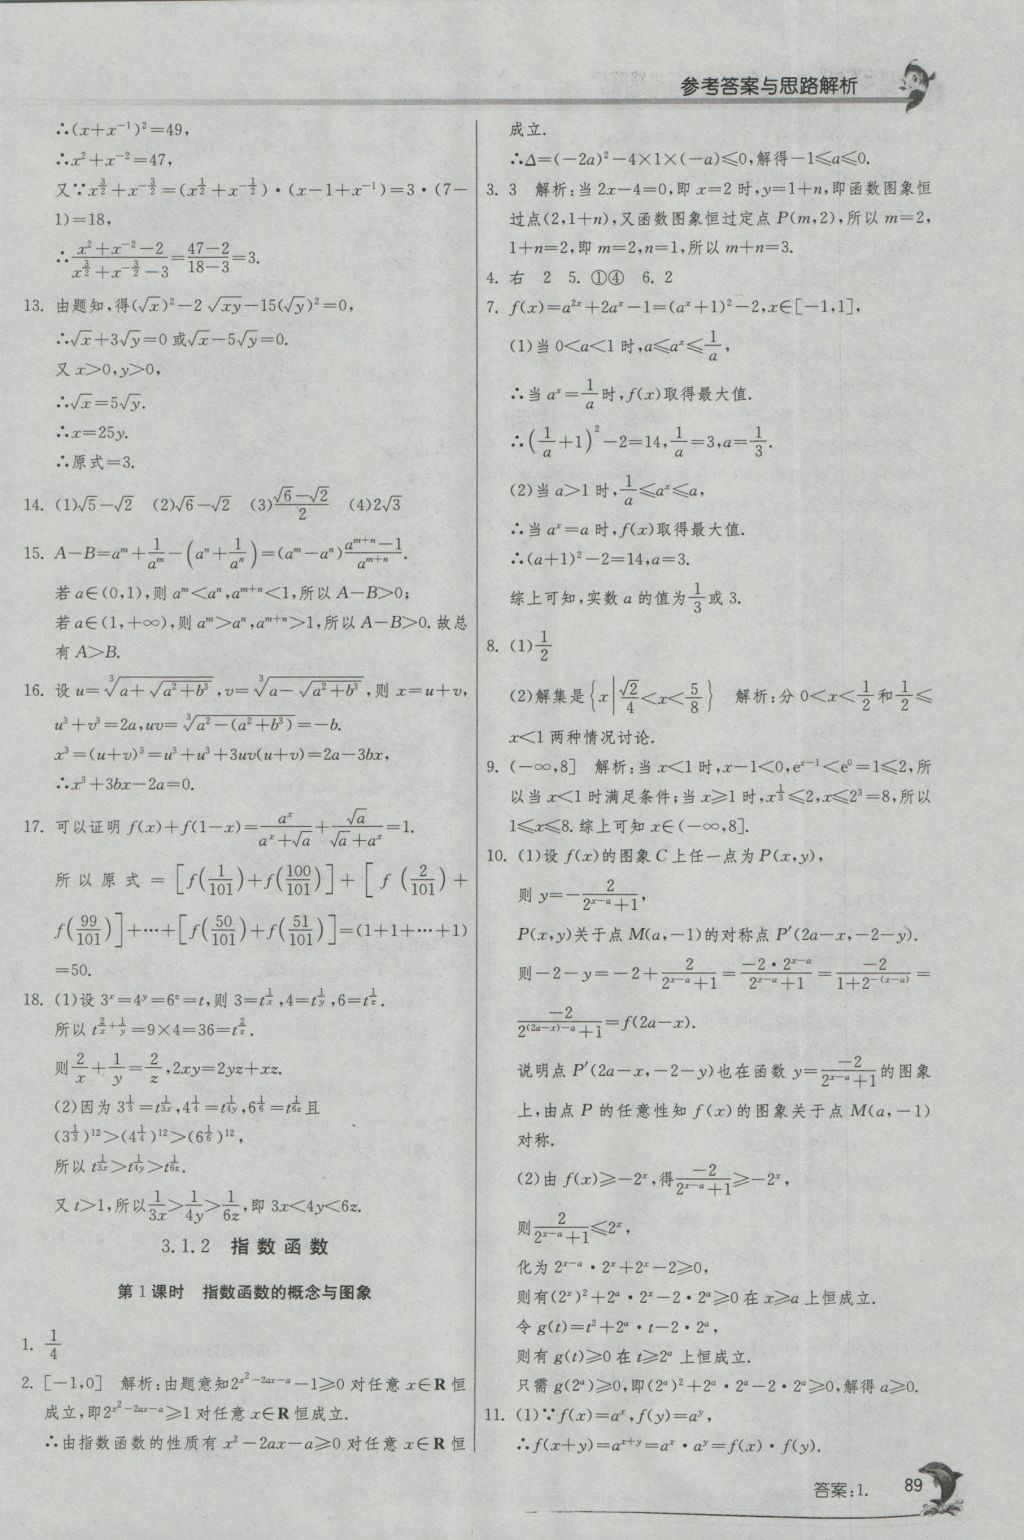 参考答案与思路解析
∴(x+x⁻¹)²=49,
∴x²+x⁻²=47,
又∵x^{3/2}+x^{-3/2}=(x^{1/2}+x^{-1/2})·(x-1+x⁻¹)=3·(7-
1)=18,
∴(x²+x⁻²-2)/(x^{3/2}+x^{-3/2}-3)=(47-2)/(18-3)=3.
13. 由题知,得(√x)²-2√xy-15(√y)²=0,
∴√x+3√y=0或√x-5√y=0.
又 x>0,y>0,
∴√x=5√y.
∴x=25y.
∴原式=3.
14. (1)√5-√2 (2)√6-√2 (3)(√6-√2)/2 (4)2√3
15. A-B=a^m+1/a^m-(a^n+1/a^n)=(a^m-a^n)(a^{m+n}-1)/a^{m+n}.
若 a∈(0,1),则 a^m<a^n,a^{m+n}<1,所以 A-B>0;
若 a∈(1,+∞),则 a^m>a^n,a^{m+n}>1,所以 A-B>0. 故总
有 A>B.
16. 设 u=∛(a+√(a²+b³)),v=∛(a-√(a²+b³)),则 x=u+v,
u³+v³=2a,uv=∛(a²-(a²+b³))=-b.
x³=(u+v)³=u³+u³+3uv(u+v)=2a-3bx,
∴x³+3bx-2a=0.
17. 可以证明 f(x)+f(1-x)=a^x/(a^x+√a)+√a/(√a+a^x)=1.
所以原式=[f(1/101)+f(100/101)]+[f(2/101)+
f(99/101)]+…+[f(50/101)+f(51/101)]=(1+1+…+1)
=50.
18. (1)设 3^x=4^y=6^z=t,则 3=t^{1/x},4=t^{1/y},6=t^{1/z}.
所以 t^{2/x+1/y}=9×4=36=t^{2/z}.
则2/x+1/y=2/z,2xy=2yz+xz.
(2)因为 3^{1/3}=t^{1/3x},4^{1/4}=t^{1/4y},6^{1/6}=t^{1/6z}且
(3^{1/3})¹²>(4^{1/4})¹²>(6^{1/6})¹²,
所以 t^{1/3x}>t^{1/4y}>t^{1/6z}.
又 t>1,所以1/3x>1/4y>1/6z,即 3x<4y<6z.
3.1.2 指数函数
第1课时 指数函数的概念与图象
1. 1/4
2. [-1,0] 解析:由题意知2^{x²-2ax-a}-1≥0 对任意 x∈R 恒
成立,即2^{x²-2ax-a}≥1 对任意 x∈R 恒成立.
∴由指数函数的性质有 x²-2ax-a≥0 对任意 x∈R 恒
成立.
∴Δ=(-2a)²-4×1×(-a)≤0,解得-1≤a≤0.
3. 3 解析:当 2x-4=0,即 x=2 时,y=1+n,即函数图象恒
过点(2,1+n),又函数图象恒过定点 P(m,2),所以 m=2,
1+n=2,即 m=2,n=1,所以 m+n=3.
4. 右 2 5. ①④ 6. 2
7. f(x)=a^{2x}+2a^x-1=(a^x+1)²-2,x∈[-1,1],
(1)当 0<a<1 时,a≤a^x≤1/a,
∴当 a^x=1/a时,f(x)取得最大值.
∴(1/a+1)²-2=14,1/a=3,a=1/3.
(2)当 a>1 时,1/a≤a^x≤a,
∴当 a^x=a 时,f(x)取得最大值.
∴(a+1)²-2=14,a=3.
综上可知,实数 a 的值为1/3或 3.
8. (1)1/2
(2)解集是{x|√2/4<x<5/8} 解析:分 0<x<1/2和1/2≤
x<1 两种情况讨论.
9. (-∞,8] 解析:当 x<1 时,x-1<0,e^{x-1}<e⁰=1≤2,所
以当 x<1 时满足条件;当 x≥1 时,x^{1/3}≤2,x≤2³=8,所以
1≤x≤8.综上可知 x∈(-∞,8].
10. (1)设 f(x)的图象 C 上任一点为 P(x,y),
则 y=-2/(2^{x-a}+1),
P(x,y)关于点 M(a,-1)的对称点 P′(2a-x,-2-y).
则-2-y=-2+2/(2^{x-a}+1)=(-2·2^{x-a})/(2^{x-a}+1)=-2/(1+2^{-(x-a)})=
-2/(2^{(2a-x)-a}+1)=f(2a-x).
说明点 P′(2a-x,-2-y)也在函数 y=-2/(2^{x-a}+1)的图象
上,由点 P 的任意性知 f(x)的图象关于点 M(a,-1)
对称.
(2)由 f(x)≥-2^x,得-2/(2^{x-a}+1)≥-2^x,
则2/(2^{x-a}+1)≤2^x,
化为 2^{x-a}·2^x+2^x-2≥0,
则有(2^x)²+2^a·2^x-2·2^a≥0 在 x≥a 上恒成立.
令 g(t)=t²+2^a·t-2·2^a,
则有 g(t)≥0 在 t≥2^a 上恒成立.
只需 g(2^a)≥0,即(2^a)²+2^a·2^a-2·2^a≥0,解得 a≥0.
11. (1)∵f(x)=a^x,f(y)=a^y,
∴f(x+y)=a^{x+y}=a^x·a^y=f(x)·f(y).
答案:1. 89